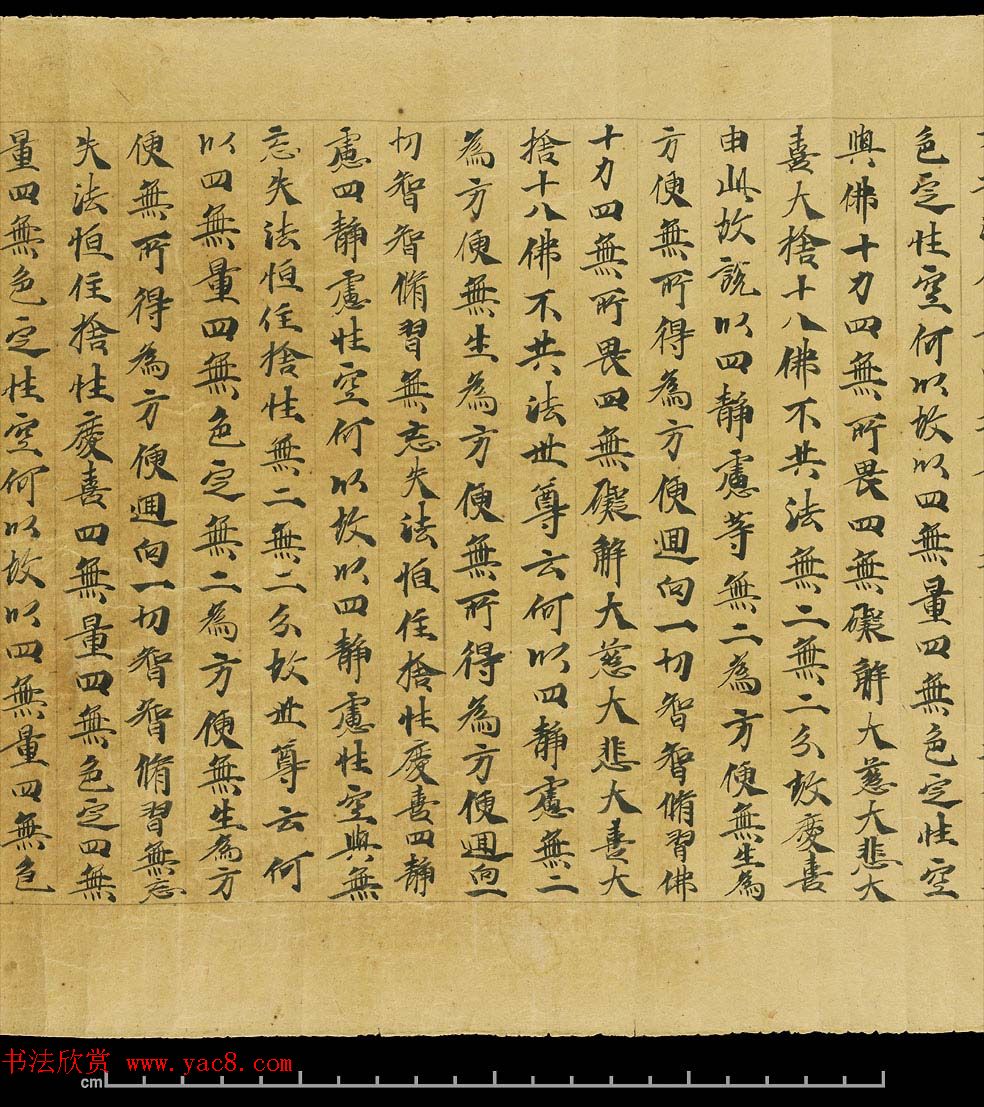 色定性空何以故以四無量四無色定性空
與佛十力四無所畏四無礙解大慈大悲大
喜大捨十八佛不共法無二無二分故慶喜
由此故說以四靜慮等無二為方便無生為
方便無所得為方便迴向一切智智脩習佛
十力四無所畏四無礙解大慈大悲大喜大
捨十八佛不共法世尊云何以四靜慮無二
為方便無生為方便無所得為方便迴向一
切智智脩習無忘失法恒住捨性慶喜四靜
慮四靜慮性空何以故以四靜慮性空與無
忘失法恒住捨性無二無二分故世尊云何
以四無量四無色定無二為方便無生為方
便無所得為方便迴向一切智智脩習無忘
失法恒住捨性慶喜四無量四無色定四無
量四無色定性空何以故以四無量四無色
书法欣赏 www.yac8.com
cm